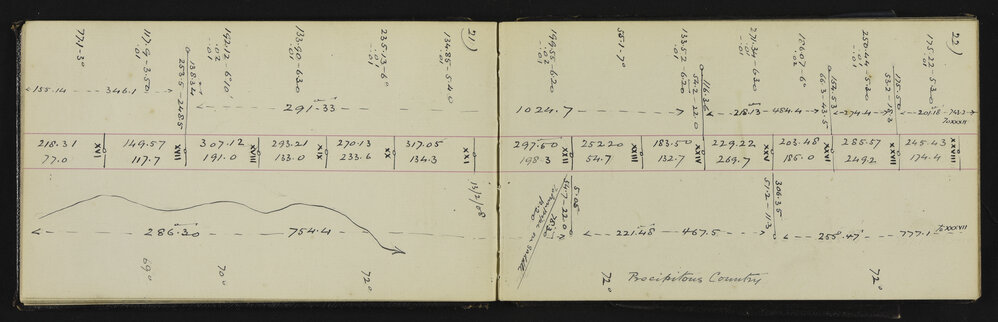 21)
77.1-3°
117.9-3.50
.01
253.5-24.85
138.34
192.12-6°10'
.02
.01
133.90-6.30
.01
235.13-6°
.01
134.85-5.40
.01
155.14 346.1
291.33
218.31 149.57 307.12 293.21 270.13 317.05
77.0 117.7 191.0 133.0 233.6 134.3
XVI XVII XVIII XIX XX XXI
13/2/08
286.20 754.4
69° 70° 72°
22)
199.55-6.20
.02
.01
55.1-7°
133.52-6.20
.01
54.2-22.0
116.36
271.34-6.30
.01
186.07-6°
.02
66.3-43.5
154.53
250.44-5.30
.01
53.2-18.3
175.50
175.22-5.30
.01
1024.7 218.13 454.4 274.4 201.18 743.2
To XXXVII
297.50 252.20 183.50 229.22 203.48 285.57 245.43
198.3 54.7 132.7 269.7 185.0 249.2 174.4
XXII XXIII XXIV XXV XXVI XXVII XXVIII
5.05
54.7-22.0
753.0
306.35
51.2-11.3
221.48 467.5 258.47 777.1
To XXXVII
72° Precipitous Country 72°